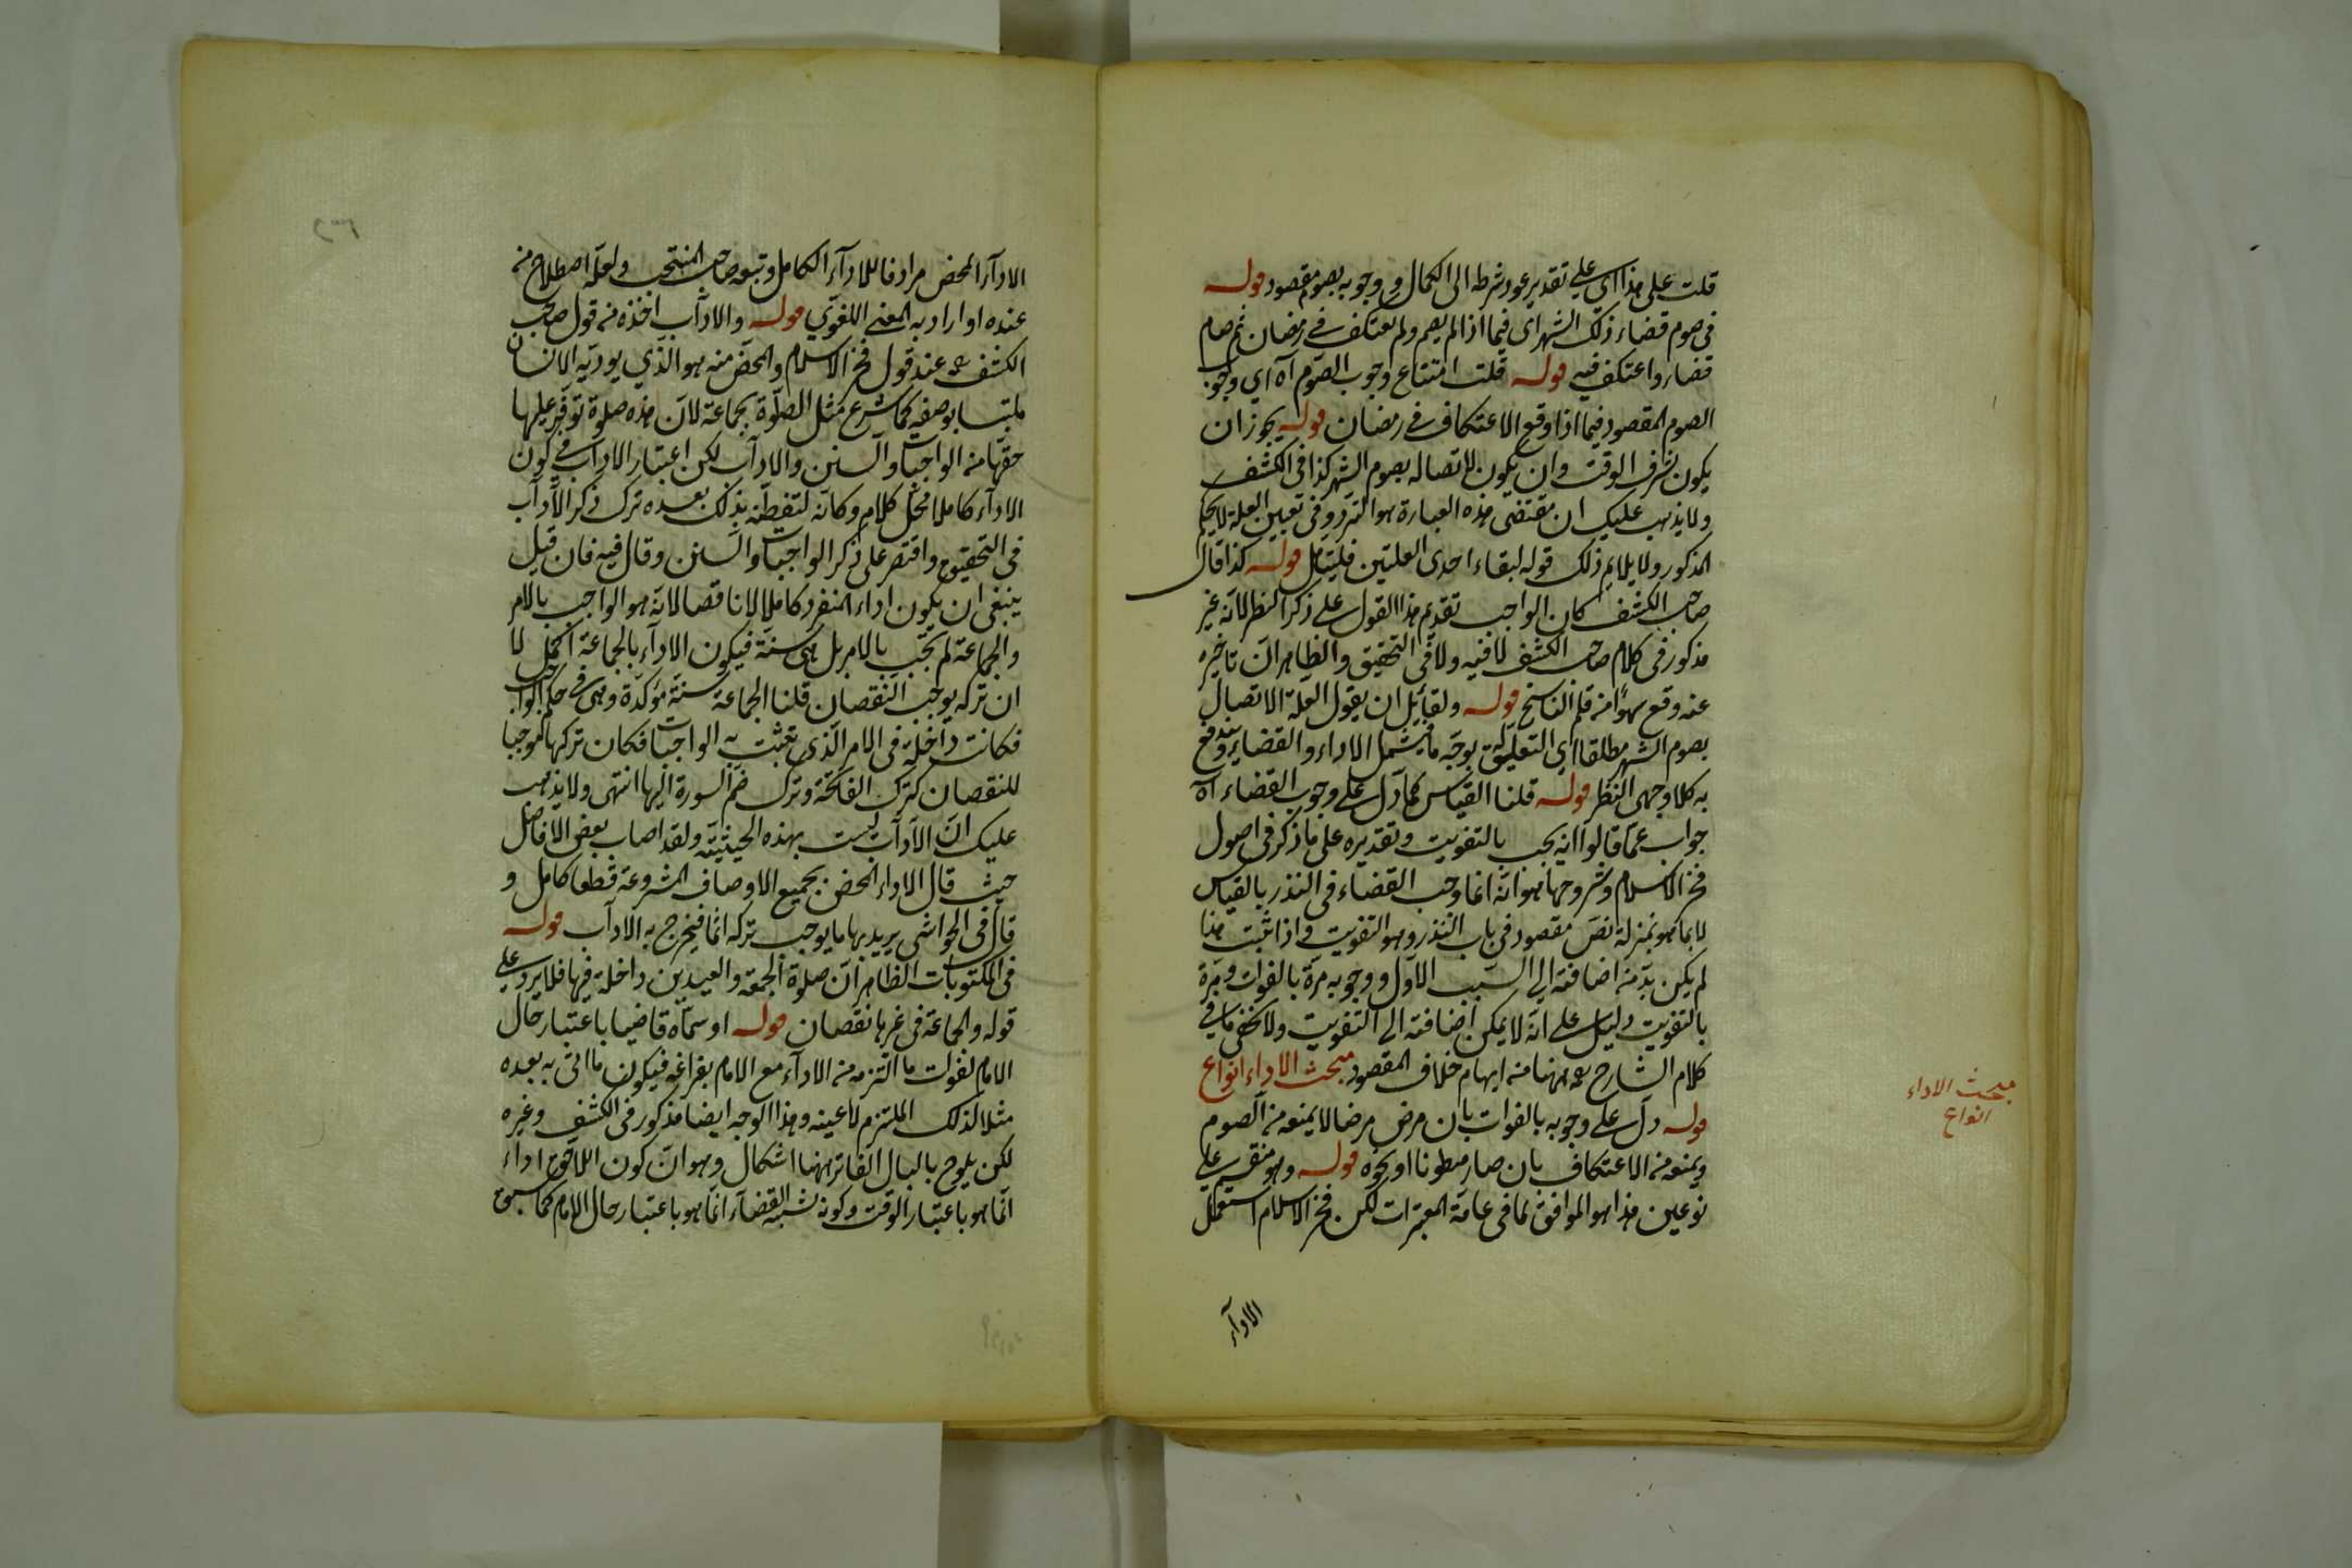 قلت على هذا اى على تقدير عود شرطه الى الكمال ووجوبه بصوم مقصود قوله
فى صوم قضاء ذلك الشهر اى فيما اذا لم يصم ولم يعتكف فى رمضان ثم صام
قضاء واعتكف فيه قوله قلت امتناع وجوب الصوم آه اى وجوب
الصوم المقصود فيما اذا وقع الاعتكاف فى رمضان قوله يجوز ان
يكون لشرف الوقت وان يكون لاتصاله بصوم الشهر كذا فى الكشف
ولا يذهب عليك ان مقتضى هذه العبارة هو التردد فى تعيين العلة لا الحكم
المذكور ولا يلايم ذلك قوله لبقاء احدى العلتين فليتأمل قوله كذا قال
صاحب الكشف كان الواجب تقديم هذا القول على ذكر النظر لانه غير
مذكور فى كلام صاحب الكشف لا فيه ولا فى التحقيق والظاهر ان تأخيره
عنه وقع سهوا من قلم الناسخ قوله ولقائل ان يقول العلة الاتصال
بصوم الشهر مطلقا اى التعليق بوجه ما يشمل الاداء والقضاء ويندفع
به كلا وجهى النظر قوله قلنا القياس كما دل على وجوب القضاء آه
جواب عما قالوا انه يجب بالتفويت وتقديره على ما ذكر فى اصول
فخر الاسلام وشروحها هو انه انما وجب القضاء فى النذر بالقياس
لا بما هو بمنزلة نص مقصود فى باب النذر وهو التفويت واذا ثبت هذا
لم يكن بد من اضافته الى السبب الاول ووجوبه مرة بالفوات ومرة
بالتفويت دليل على انه لا يمكن اضافته الى التفويت ولا يخفى ما فى
كلام الشارح ههنا من ايهام خلاف المقصود مبحث الاداء انواع
قوله دل على وجوبه بالفوات بان مرض مرضا لا يمنعه من الصوم
ويمنعه من الاعتكاف بان صار مبطونا او نحوه قوله وهو منقسم على
نوعين هذا هو الموافق لما فى عامة المعتبرات لكن فخر الاسلام استعمل
الادآء
مبحث الاداء
انواع
الادآء المحض مرادفا للادآء الكامل وتبعه صاحب المنتخب ولعله اصطلاح منه
عنده او اراد به المعنى اللغوى قوله والادآب اخذه من قول صاحب
الكشف عند قول فخر الاسلام والمحض منه هو الذى يوديه الانسان
ملتبسا بوصفه كما شرع مثل الصلوة بجماعة لان هذه صلوة توفر عليها
حقها من الواجبات والسنن والادآب لكن اعتبار الادآب فى كون
الادآء كاملا محل كلام وكانه لتفطنه بذلك بعده ترك ذكر الادآب
فى التحقيق واقتصر على ذكر الواجبات والسنن وقال فيه فان قيل
ينبغى ان يكون اداء المنفرد كاملا لا ناقصا لانه هو الواجب بالامر
والجماعة لم تجب بالامر بل هى سنة فيكون الادآء بالجماعة اكمل لا
ان تركه يوجب النقصان قلنا الجماعة سنة مؤكدة وهى فى حكم الواجب
فكانت داخلة فى الامر الذى تثبت به الواجبات فكان تركها موجبا
للنقصان كترك الفاتحة وترك ضم السورة اليها انتهى ولا يذهب
عليك ان الادآب ليست بهذه الحيثية ولقد اصاب بعض الافاضل
حيث قال الاداء المحض بجميع الاوصاف المشروعة قطعا كامل و
قال فى الحواشى يريد بها ما يوجب تركه اثما فيخرج به الادآب قوله
فى المكتوبات الظاهر ان صلوة الجمعة والعيدين داخلة فيها فلا يرد على
قوله والجماعة فى غيرها نقصان قوله او سماه قاضيا باعتبار حال
الامام لفوات ما التزمه من الادآء مع الامام بفراغه فيكون ما اتى به بعده
مثلا لذلك الملتزم لا عينه وهذا الوجه ايضا مذكور فى الكشف وغيره
لكن يلوح بالبال الفاتر ههنا اشكال وهو ان كون اللاحق اداء
انما هو باعتبار الوقت وكونه شبيه القضاء انما هو باعتبار حال الامام كما سبق